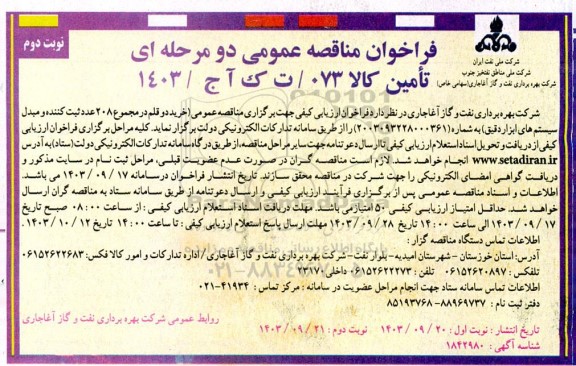 نوبت دوم
فراخوان مناقصه عمومی دو مرحله ای
تأمین کالا ۰۷۳ / ت ک آ ج / ۱۴۰۳
شرکت ملی نفت ایران
شرکت ملی مناطق نفتخیز جنوب
شرکت بهره برداری نفت و گاز آغاجاری(سهامی خاص)
شرکت بهره برداری نفت و گاز آغاجاری در نظر دارد فراخوان ارزیابی کیفی جهت برگزاری مناقصه عمومی (خرید دو قلم در مجموع ۲۰۸ عدد ثبت کننده و مبدل
سیستم های ابزار دقیق) به شماره (۲۰۰۳۰۹۳۲۲۸۰۰۰۳۶۱) را از طریق سامانه تدارکات الکترونیکی دولت برگزار نماید. کلیه مراحل برگزاری فراخوان ارزیابی
کیفی از دریافت و تحویل اسناد استعلام ارزیابی کیفی تا ارسال دعوتنامه جهت سایر مراحل مناقصه، از طریق درگاه سامانه تدارکات الکترونیکی دولت (ستاد) به آدرس
www.setadiran.ir انجام خواهد شد. لازم است مناقصه گران در صورت عدم عضویت قبلی، مراحل ثبت نام در سایت مذکور و
دریافت گواهی امضای الکترونیکی را جهت شرکت در مناقصه محقق سازند. تاریخ انتشار فراخوان در سامانه ۱۷ / ۰۹ / ۱۴۰۳ می باشد.
اطلاعات و اسناد مناقصه عمومی پس از برگزاری فرآیند ارزیابی کیفی و ارسال دعوتنامه از طریق سامانه ستاد به مناقصه گران ارسال
خواهد شد. حداقل امتیاز ارزیابی کیفی ۵۰ امتیاز می باشد. مهلت دریافت اسناد استعلام ارزیابی کیفی : از ساعت ۰۸:۰۰ صبح تاریخ
۱۷ / ۰۹ / ۱۴۰۳ الی ساعت ۱۴:۰۰ تاریخ ۲۸ / ۰۹ / ۱۴۰۳ مهلت ارسال پاسخ استعلام ارزیابی کیفی : تا ساعت ۱۴:۰۰ تاریخ ۱۲ / ۱۰ / ۱۴۰۳ .
اطلاعات تماس دستگاه مناقصه گزار :
آدرس: استان خوزستان – شهرستان امیدیه– بلوار نفت– شرکت بهره برداری نفت و گاز آغاجاری / اداره تدارکات و امور کالا فکس: ۰۶۱۵۲۶۲۲۶۸۳
تلفکس : ۰۶۱۵۲۶۲۰۸۹۷ تلفن : ۰۶۱۵۲۶۲۲۲۷۳ داخلی ۷۳۱۷۰
اطلاعات تماس سامانه ستاد جهت انجام مراحل عضویت در سامانه : مرکز تماس : ۴۱۹۳۴-۰۲۱
دفتر ثبت نام : ۸۸۹۶۹۷۳۷ – ۸۵۱۹۳۷۶۸
روابط عمومی شرکت بهره برداری نفت و گاز آغاجاری
تاریخ انتشار : نوبت اول : ۲۰ / ۰۹ / ۱۴۰۳ نوبت دوم : ۲۱ / ۰۹ / ۱۴۰۳
شناسه آگهی : ۱۸۴۲۹۸۰